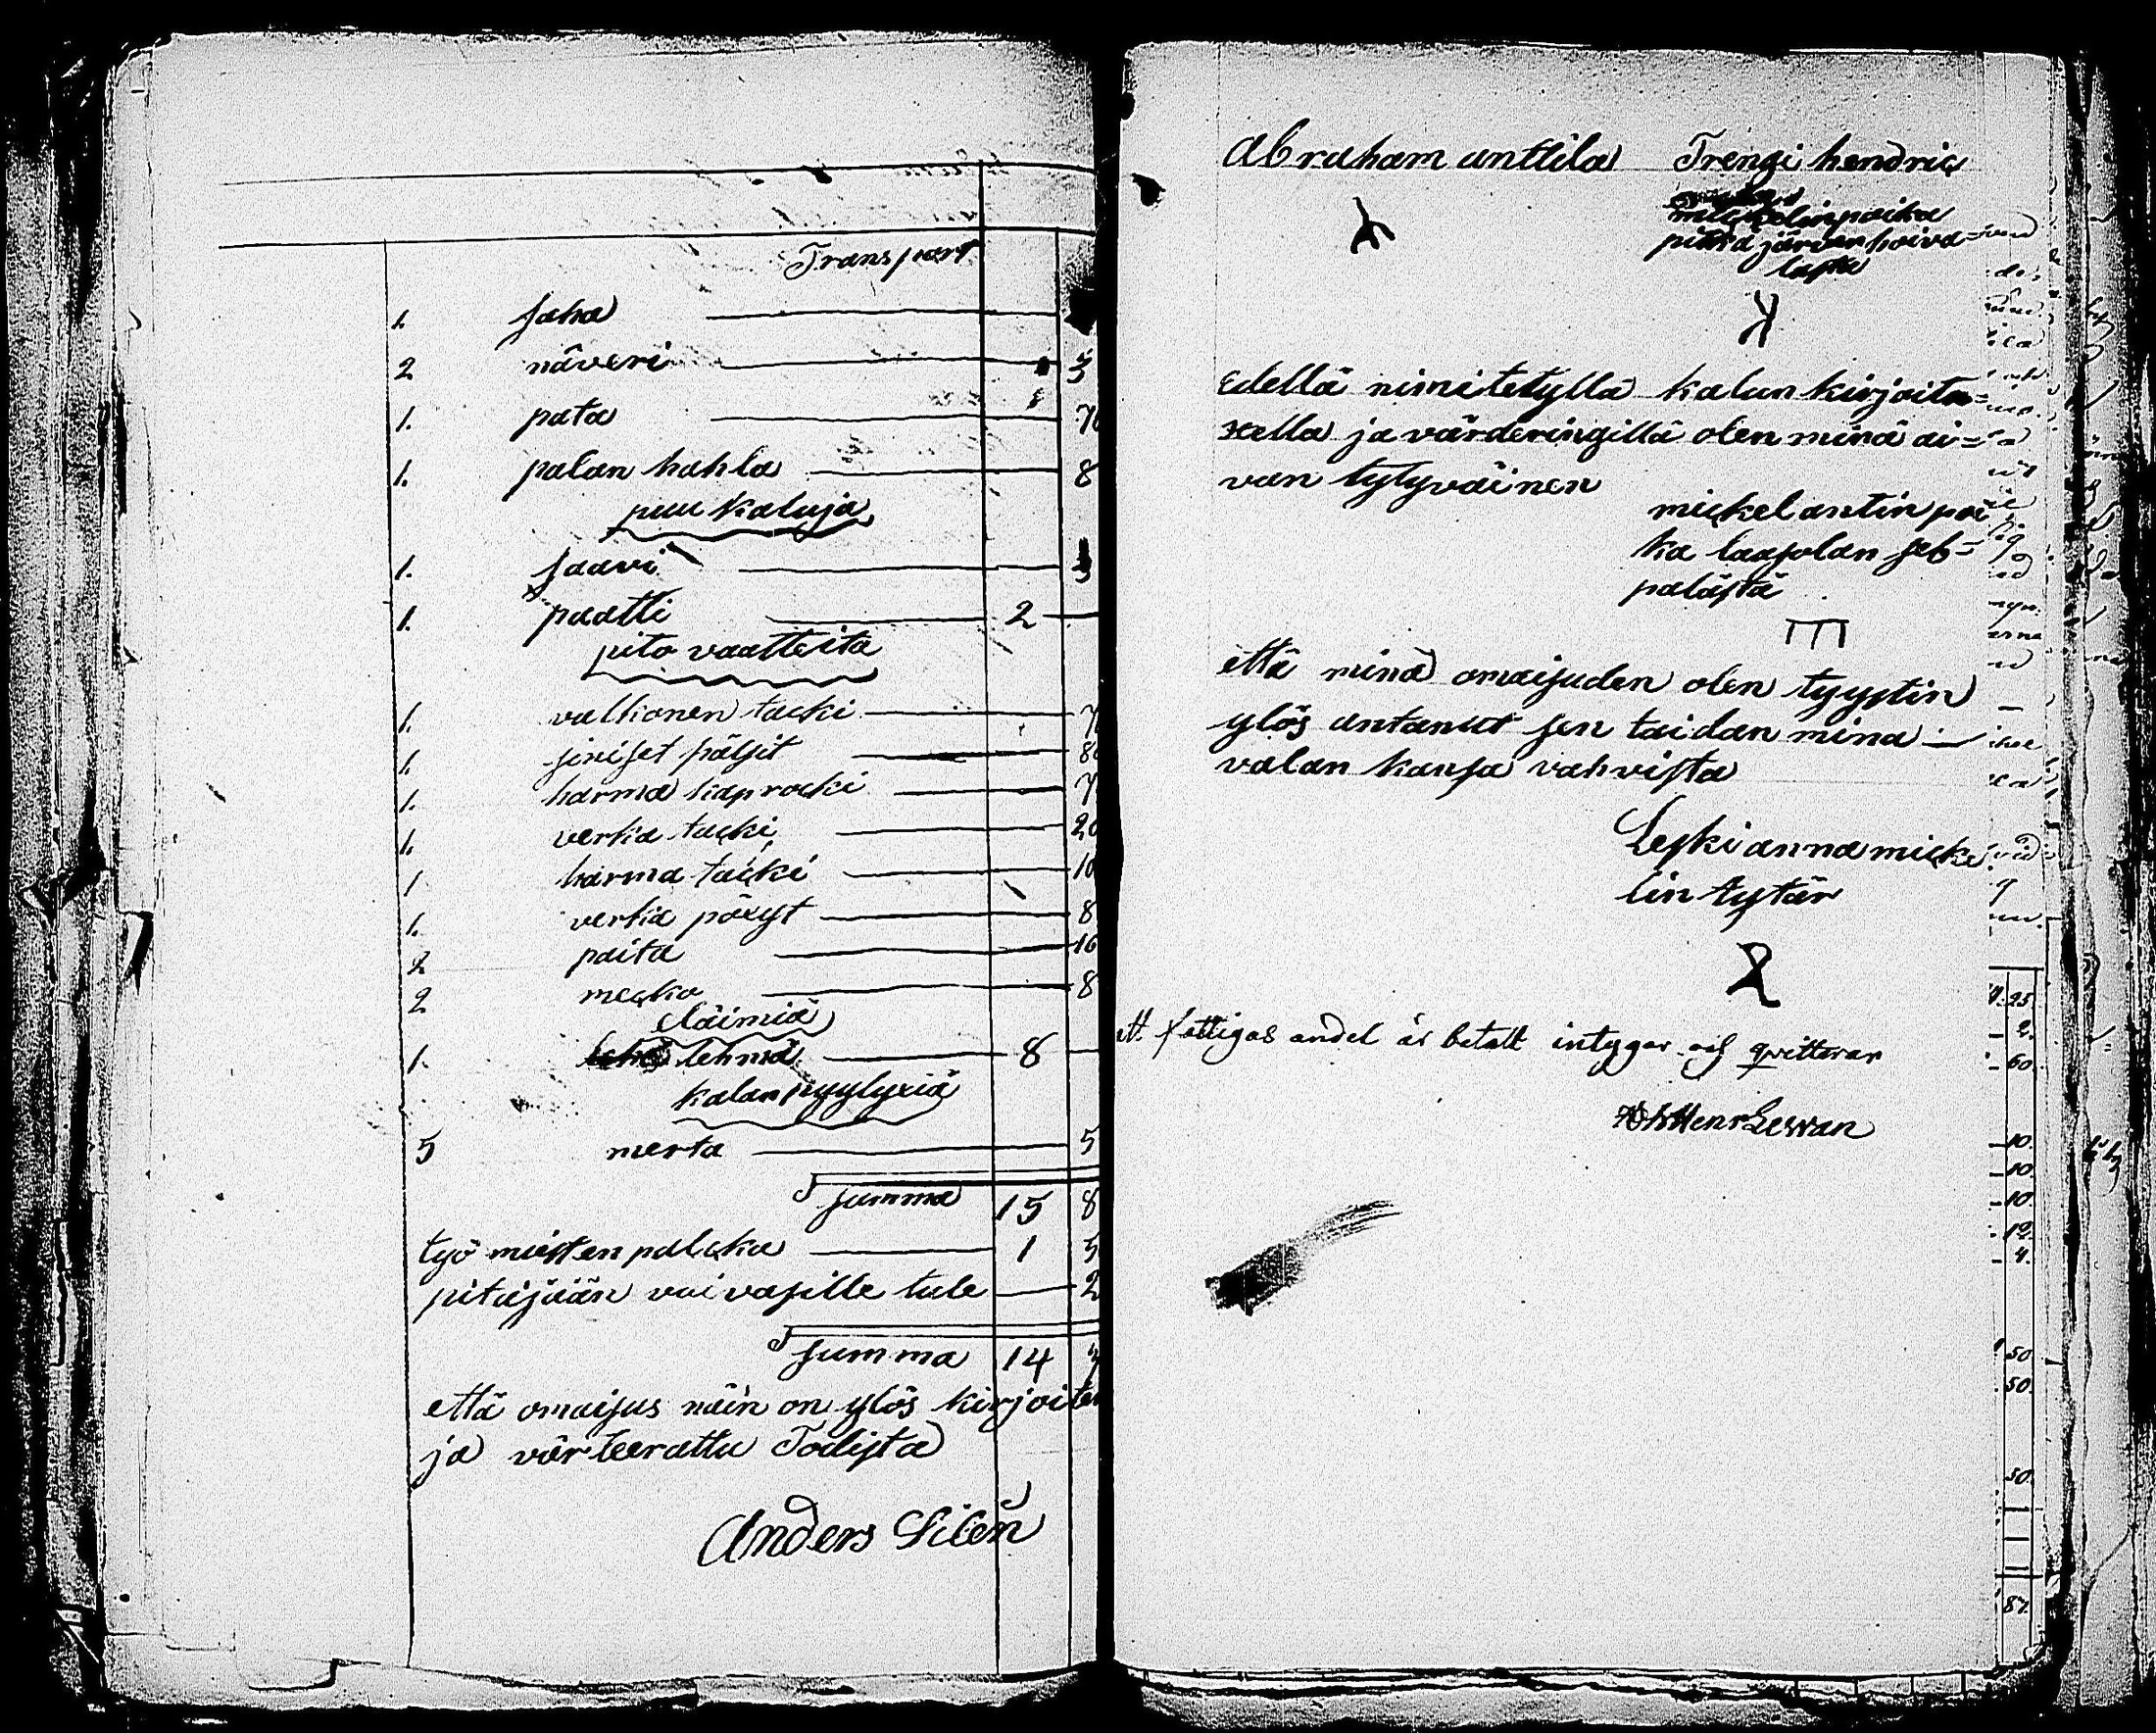 Transport
1. saha
2 näveri 5
1. pata 70
1. palan hahla 8
puu kaluja
1. saavi
1. paatti 2 —
pito vaatteita
1. valkonen tacki 7
1. siniset pälsit 80
1. harma kaprocki 7
1. verka tacki 20
1 harma tacki 10
1. verka pöxyt 8
2 paita 16
2 mecko 8
eläimiä
1. lehmä 8 —
kalan pyylyxiä
5 merta 5
summa 15 8
työ miesten palcka 1 5
pitäjään vaivasille tule — 2
summa 14
että omaisus näin on ylös kirjoitet
ja värteerattu Todista
Anders Silen
Abraham anttila Trengi hendric
mickelinpoika
pitkäjärven hoiva=
lasta
edellä nimitetyllä kalun kirjoita=
xella ja värderingillä olen minä ai=
van tytyväinen
mickel antin poi
ka laasolan sep=
pälästä
että minä omaisuden olen tyystin
ylös antanut sen taidan minä —
valan kansa vahvista
Leski anna micke
lin tytär
att fattigas andel är betalt intygar och qvitterar
Henr Lewan